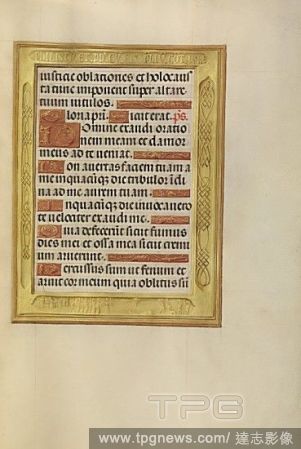 iusticie oblationes et holocaus
ta tunc imponent super altare
tuum vitulos.
Gloria pri. Sicut erat. ps.
Domine exaudi oratio
nem meam et clamor
meus ad te veniat.
Non avertas faciem tuam a
me in quacumq; die tribulor idi
na ad me aurem tuam.
In quacumq; die invocavero
te velociter exaudi me.
Quia defecerunt sicut fumus
dies mei et ossa mea sicut cremi
um aruerunt.
Percussus sum ut fenum et
aruit cor meum quia oblitus su
TPG
www.tpgnews.com/ 達志影像